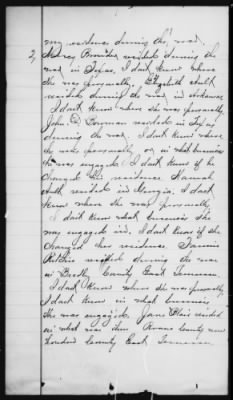 my residence during the war.
2, Nancy Bowman resided during the
war in Texas, I dont know where
she was personally. Elizabeth Ault
resided during the war in Arkansas
I dont know where she was personally
John D. Bowman resided in Texas
during the war. I dont know where
he was personally or in what business
he was engaged. I dont know if he
changed his residence. Hannah
Ault resided in Georgia. I dont
know where she was personally
I dont know what business she
was engaged in. I dont know if she
changed her residence. Fannie
Ritchie resided during the war
in Bradley County East Tennessee.
I dont know where she was personally
I dont know in what business
she was engaged. Jane Blair resided
in what was then Roane County now
Loudon County East Tennessee